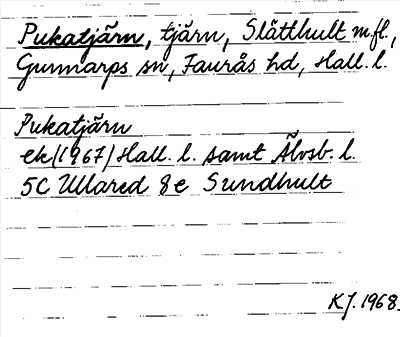 Pukatjärn, tjärn, Slätthult m.fl.,
Gunnarps sn, Faurås hd, Hall. l.
Pukatjärn
ek(1967) Hall. l. samt Älvsb. l.
5C Ullared 8e Sundhult
KJ. 1968.